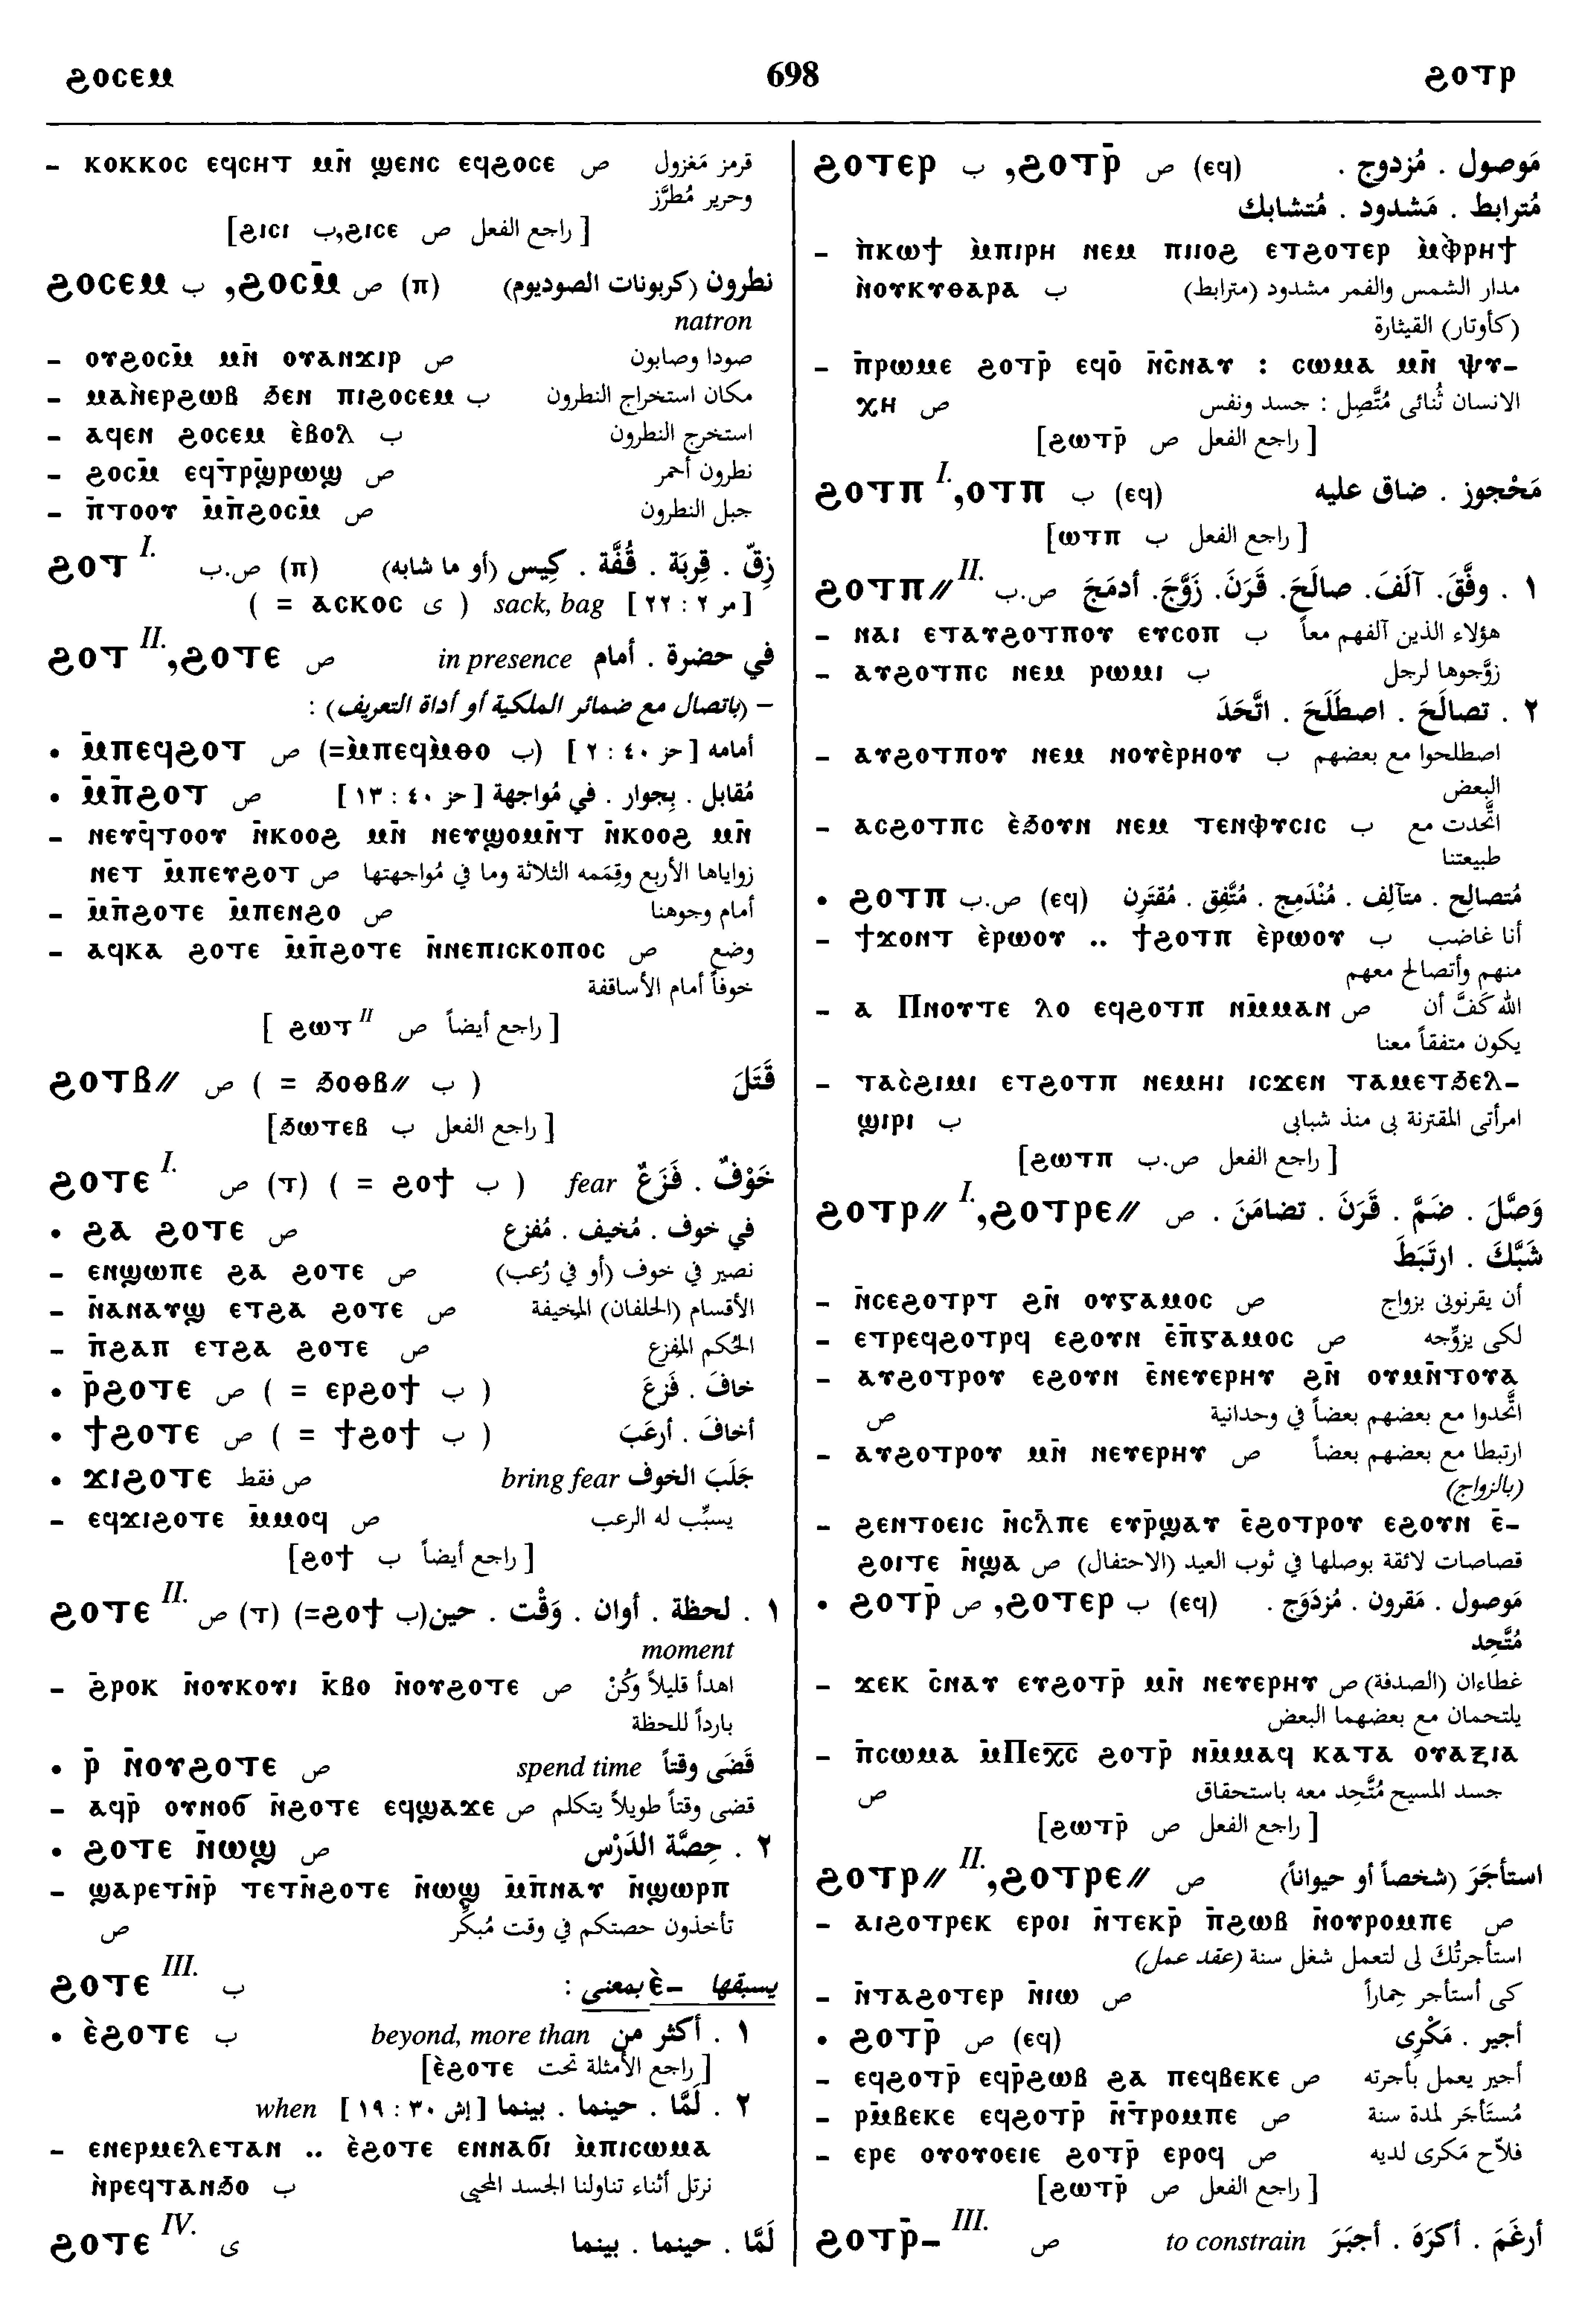 ϩⲟⲥⲉⲙ 698 ϩⲟⲧⲣ
– ⲕⲟⲕⲕⲟⲥ ⲉϥⲥⲏⲧ ⲙⲛ̄ ϣⲉⲛⲥ ⲉϥϩⲟⲥⲉ ص قرمز مَغزول
وحرير مُطرَّز
[ راجع الفعل ص ϩⲓⲥⲉ, ب ϩⲓⲥⲓ]
ϩⲟⲥⲉⲙ ب ,ϩⲟⲥⲙ̄ ص (ⲡ) نطرون (كربونات الصوديوم)
natron
– ⲟⲩϩⲟⲥⲙ̄ ⲙⲛ̄ ⲟⲩⲁⲛϫⲓⲣ ص صودا وصابون
– ⲙⲁⲛ̀ⲉⲣϩⲱⲃ ϧⲉⲛ ⲡⲓϩⲟⲥⲉⲙ ب مكان استخراج النطرون
– ⲁϥⲉⲛ ϩⲟⲥⲉⲙ ⲉ̀ⲃⲟⲗ ب استخرج النطرون
– ϩⲟⲥⲙ̄ ⲉϥⲧ̄ⲣϣ̄ⲣⲱϣ ص نطرون أحمر
– ⲡ̄ⲧⲟⲟⲩ ⲙ̄ⲡ̄ϩⲟⲥⲙ̄ ص جبل النطرون
ϩⲟⲧ I. ص.ب (ⲡ) زِقّ . قِربَة . قُفَّة . كِيس (أو ما شابه)
( = ⲁⲥⲕⲟⲥ ى ) sack, bag [مر ٢ : ٢٢ ]
ϩⲟⲧ II. ,ϩⲟⲧⲉ ص in presence في حضرة . أمام
– (باتصال مع ضمائر الملكية أو أداة التعريف) :
• ⲙ̄ⲡⲉϥϩⲟⲧ ص (=ⲙ̀ⲡⲉϥⲙ̀ⲑⲟ ب) أمامه [ حز ٤٠ : ٢ ]
• ⲙ̄ⲡ̄ϩⲟⲧ ص مُقابل . بِجوار . في مُواجهة [ حز ٤٠ : ١٣ ]
– ⲛⲉⲩϥ̄ⲧⲟⲟⲩ ⲛ̄ⲕⲟⲟϩ ⲙⲛ̄ ⲛⲉⲩϣⲟⲙⲛ̄ⲧ ⲛ̄ⲕⲟⲟϩ ⲙⲛ̄
ⲛⲉⲧ ⲙ̄ⲡⲉⲩϩⲟⲧ ص زواياها الأربع وقِمَمه الثلاثة وما في مُواجهتها
– ⲙ̄ⲡ̄ϩⲟⲧⲉ ⲙ̄ⲡⲉⲛϩⲟ ص أمام وجوهنا
– ⲁϥⲕⲁ ϩⲟⲧⲉ ⲙ̄ⲡ̄ϩⲟⲧⲉ ⲛ̄ⲛⲉⲡⲓⲥⲕⲟⲡⲟⲥ ص وضع
خوفاً أمام الأساقفة
[ راجع أيضاً ص ϩⲱⲧ II ]
ϩⲟⲧⲃ// ص ( = ϧⲟⲑⲃ// ب ) قَتَلَ
[ راجع الفعل ب ϧⲱⲧⲉⲃ]
ϩⲟⲧⲉ I. ص (ⲧ) ( = ϩⲟϯ ب ) fear خَوْفٌ . فَزَعٌ
• ϩⲁ ϩⲟⲧⲉ ص في خوف . مُخيف . مُفزع
– ⲉⲛϣⲱⲡⲉ ϩⲁ ϩⲟⲧⲉ ص نصير في خوف (أو في رُعب)
– ⲛ̄ⲁⲛⲁⲩϣ ⲉⲧϩⲁ ϩⲟⲧⲉ ص الأقسام (الحلفان) المخيفة
– ⲡ̄ϩⲁⲡ ⲉⲧϩⲁ ϩⲟⲧⲉ ص الحُكم المفزع
• ⲣ̄ϩⲟⲧⲉ ص ( = ⲉⲣϩⲟϯ ب ) خافَ . فَزِعَ
• ϯϩⲟⲧⲉ ص ( = ϯϩⲟϯ ب ) أخافَ . أرعَبَ
• ϫⲓϩⲟⲧⲉ ص فقط bring fear جَلَبَ الخوف
– ⲉϥϫⲓϩⲟⲧⲉ ⲙ̄ⲙⲟϥ ص يسبِّب له الرعب
[ راجع أيضاً ب ϩⲟϯ]
ϩⲟⲧⲉ II. ص (ⲧ) (=ϩⲟϯ ب) ١ . لحظة . أوان . وَقْت . حين
moment
– ϩ̄ⲣⲟⲕ ⲛ̄ⲟⲩⲕⲟⲩⲓ ⲕ̄ⲃⲟ ⲛ̄ⲟⲩϩⲟⲧⲉ ص اهدأ قليلاً وكُنْ
بارداً للحظة
• ⲣ̄ ⲛ̄ⲟⲩϩⲟⲧⲉ ص spend time قَضَى وقتاً
– ⲁϥⲣ̄ ⲟⲩⲛⲟϭ ⲛ̄ϩⲟⲧⲉ ⲉϥϣⲁϫⲉ ص قضى وقتاً طويلاً يتكلم
• ϩⲟⲧⲉ ⲛ̄ⲱϣ ص ٢ . حِصَّة الدَرْس
– ϣⲁⲣⲉⲧⲛ̄ⲣ̄ ⲧⲉⲧⲛ̄ϩⲟⲧⲉ ⲛ̄ⲱϣ ⲙ̄ⲡ̄ⲛⲁⲩ ⲛ̄ϣⲱⲣⲡ
ص تأخذون حصتكم في وقت مُبكِّر
ϩⲟⲧⲉ III. ب يسبقها –ⲉ̀ بمعنى :
• ⲉ̀ϩⲟⲧⲉ ب beyond, more than ١ . أكثر من
[ راجع الأمثلة تحت ⲉ̀ϩⲟⲧⲉ]
when [ إش ٣٠ : ١٩ ] ٢ . لَمَّا . حينما . بينما
– ⲉⲛⲉⲣⲙⲉⲗⲉⲧⲁⲛ .. ⲉ̀ϩⲟⲧⲉ ⲉⲛⲛⲁϭⲓ ⲙ̀ⲡⲓⲥⲱⲙⲁ
ⲛ̀ⲣⲉϥⲧⲁⲛϧⲟ ب نرتل أثناء تناولنا الجسد المحيى
ϩⲟⲧⲉ IV. ى لَمَّا . حينما . بينما
ϩⲟⲧⲉⲣ ب ,ϩⲟⲧⲣ̄ ص (ⲉϥ) مَوصول . مُزدوج .
مُترابط . مَشدود . مُتشابك
– ⲛ̀ⲕⲱϯ ⲙ̀ⲡⲓⲣⲏ ⲛⲉⲙ ⲡⲓⲓⲟϩ ⲉⲧϩⲟⲧⲉⲣ ⲙ̀ⲫⲣⲏϯ
ⲛ̀ⲟⲩⲕⲩⲑⲁⲣⲁ ب مدار الشمس والقمر مشدود (مترابط)
(كأوتار) القيثارة
– ⲡ̄ⲣⲱⲙⲉ ϩⲟⲧⲣ̄ ⲉϥⲟ̄ ⲛ̄ⲥ̄ⲛⲁⲩ : ⲥⲱⲙⲁ ⲙⲛ̄ ⲯⲩ-
ⲭⲏ ص الانسان ثُنائى مُتَّصِل : جسد ونفس
[ راجع الفعل ص ϩⲱⲧⲣ̄]
ϩⲟⲧⲡ I. ,ⲟⲧⲡ ب (ⲉϥ) مَحْجوز . ضاق عليه
[ راجع الفعل ب ⲱⲧⲡ]
ϩⲟⲧⲡ// II. ص.ب ١ . وفَّقَ. آلَفَ. صالَحَ. قَرَنَ. زَوَّجَ. أدمَجَ
– ⲛⲁⲓ ⲉⲧⲁⲩϩⲟⲧⲡⲟⲩ ⲉⲩⲥⲟⲡ ب هؤلاء الذين آلفهم معاً
– ⲁⲩϩⲟⲧⲡⲥ ⲛⲉⲙ ⲣⲱⲙⲓ ب زوَّجوها لرجل
٢ . تصالَحَ . اصطَلَحَ . اتَّحَدَ
– ⲁⲩϩⲟⲧⲡⲟⲩ ⲛⲉⲙ ⲛⲟⲩⲉ̀ⲣⲏⲟⲩ ب اصطلحوا مع بعضهم
البعض
– ⲁⲥϩⲟⲧⲡⲥ ⲉ̀ϧⲟⲩⲛ ⲛⲉⲙ ⲧⲉⲛⲫⲩⲥⲓⲥ ب اتَّحدت مع
طبيعتنا
• ϩⲟⲧⲡ ص.ب (ⲉϥ) مُتصالِح . متآلِف . مُنْدَمِج . مُتَّفِق . مُقتَرِن
– ϯϫⲟⲛⲧ ⲉ̀ⲣⲱⲟⲩ .. ϯϩⲟⲧⲡ ⲉ̀ⲣⲱⲟⲩ ب أنا غاضب
منهم وأتصالح معهم
– ⲁ Ⲡⲛⲟⲩⲧⲉ ⲗⲟ ⲉϥϩⲟⲧⲡ ⲛⲙ̄ⲙⲁⲛ ص الله كَفَّ أن
يكون متفقاً معنا
– ⲧⲁⲥ̀ϩⲓⲙⲓ ⲉⲧϩⲟⲧⲡ ⲛⲉⲙⲏⲓ ⲓⲥϫⲉⲛ ⲧⲁⲙⲉⲧϧⲉⲗ-
ϣⲓⲣⲓ ب امرأتى المقترنة بى منذ شبابى
[ راجع الفعل ص.ب ϩⲱⲧⲡ]
ϩⲟⲧⲣ// I. ,ϩⲟⲧⲣⲉ// ص وَصَّلَ . ضَمَّ . قَرَنَ . تضامَنَ .
شَبَّكَ . ارتَبَطَ
– ⲛ̄ⲥⲉϩⲟⲧⲣⲧ ϩⲛ̄ ⲟⲩⲅⲁⲙⲟⲥ ص أن يقرنونى بزواج
– ⲉⲧⲣⲉϥϩⲟⲧⲣϥ ⲉϩⲟⲩⲛ ⲉ̄ⲡ̄ⲅⲁⲙⲟⲥ ص لكى يزوِّجه
– ⲁⲩϩⲟⲧⲣⲟⲩ ⲉϩⲟⲩⲛ ⲉ̄ⲛⲉⲩⲉⲣⲏⲩ ϩⲛ̄ ⲟⲩⲙⲛ̄ⲧⲟⲩⲁ
ص اتَّحدوا مع بعضهم بعضاً في وحدانية
– ⲁⲩϩⲟⲧⲣⲟⲩ ⲙⲛ̄ ⲛⲉⲩⲉⲣⲏⲩ ص ارتبطا مع بعضهم بعضاً
(بالزواج)
– ϩⲉⲛⲧⲟⲉⲓⲥ ⲛ̄ⲥⲗ̄ⲡⲉ ⲉⲩⲣ̄ϣⲁⲩ ⲉ̄ϩⲟⲧⲣⲟⲩ ⲉϩⲟⲩⲛ ⲉ̄-
ϩⲟⲓⲧⲉ ⲛ̄ϣⲁ ص قصاصات لائقة بوصلها في ثوب العيد (الاحتفال)
• ϩⲟⲧⲣ̄ ص ,ϩⲟⲧⲉⲣ ب (ⲉϥ) مَوصول . مَقرون . مُزدَوَج .
مُتَّحِد
– ϫⲉⲕ ⲥ̄ⲛⲁⲩ ⲉⲩϩⲟⲧⲣ̄ ⲙⲛ̄ ⲛⲉⲩⲉⲣⲏⲩ ص غطاءان (الصدفة)
يلتحمان مع بعضهما البعض
– ⲡ̄ⲥⲱⲙⲁ ⲙ̄Ⲡⲉⲭ̅ⲥ̅ ϩⲟⲧⲣ̄ ⲛⲙ̄ⲙⲁϥ ⲕⲁⲧⲁ ⲟⲩⲁⲝⲓⲁ
ص جسد المسيح مُتَّحِد معه باستحقاق
[ راجع الفعل ص ϩⲱⲧⲣ̄]
ϩⲟⲧⲣ// II. ,ϩⲟⲧⲣⲉ// ص استأجَرَ (شخصاً أو حيواناً)
– ⲁⲓϩⲟⲧⲣⲉⲕ ⲉⲣⲟⲓ ⲛ̄ⲧⲉⲕⲣ̄ ⲡ̄ϩⲱⲃ ⲛ̄ⲟⲩⲣⲟⲙⲡⲉ ص
استأجرتُكَ لى لتعمل شغل سنة (عقد عمل)
– ⲛ̄ⲧⲁϩⲟⲧⲉⲣ ⲛ̄ⲓⲱ ص كى أستأجر حِماراً
• ϩⲟⲧⲣ̄ ص (ⲉϥ) أجير . مَكْرِى
– ⲉϥϩⲟⲧⲣ̄ ⲉϥⲣ̄ϩⲱⲃ ϩⲁ ⲡⲉϥⲃⲉⲕⲉ ص أجير يعمل بأجرته
– ⲣⲙ̄ⲃⲉⲕⲉ ⲉϥϩⲟⲧⲣ̄ ⲛ̄ⲧ̄ⲣⲟⲙⲡⲉ ص مُستَأجَر لمدة سنة
– ⲉⲣⲉ ⲟⲩⲟⲩⲟⲉⲓⲉ ϩⲟⲧⲣ̄ ⲉⲣⲟϥ ص فلاّح مَكرى لديه
[ راجع الفعل ص ϩⲱⲧⲣ̄]
ϩⲟⲧⲣ̄– III. ص to constrain أرغَمَ . أكرَهَ . أجبَرَ